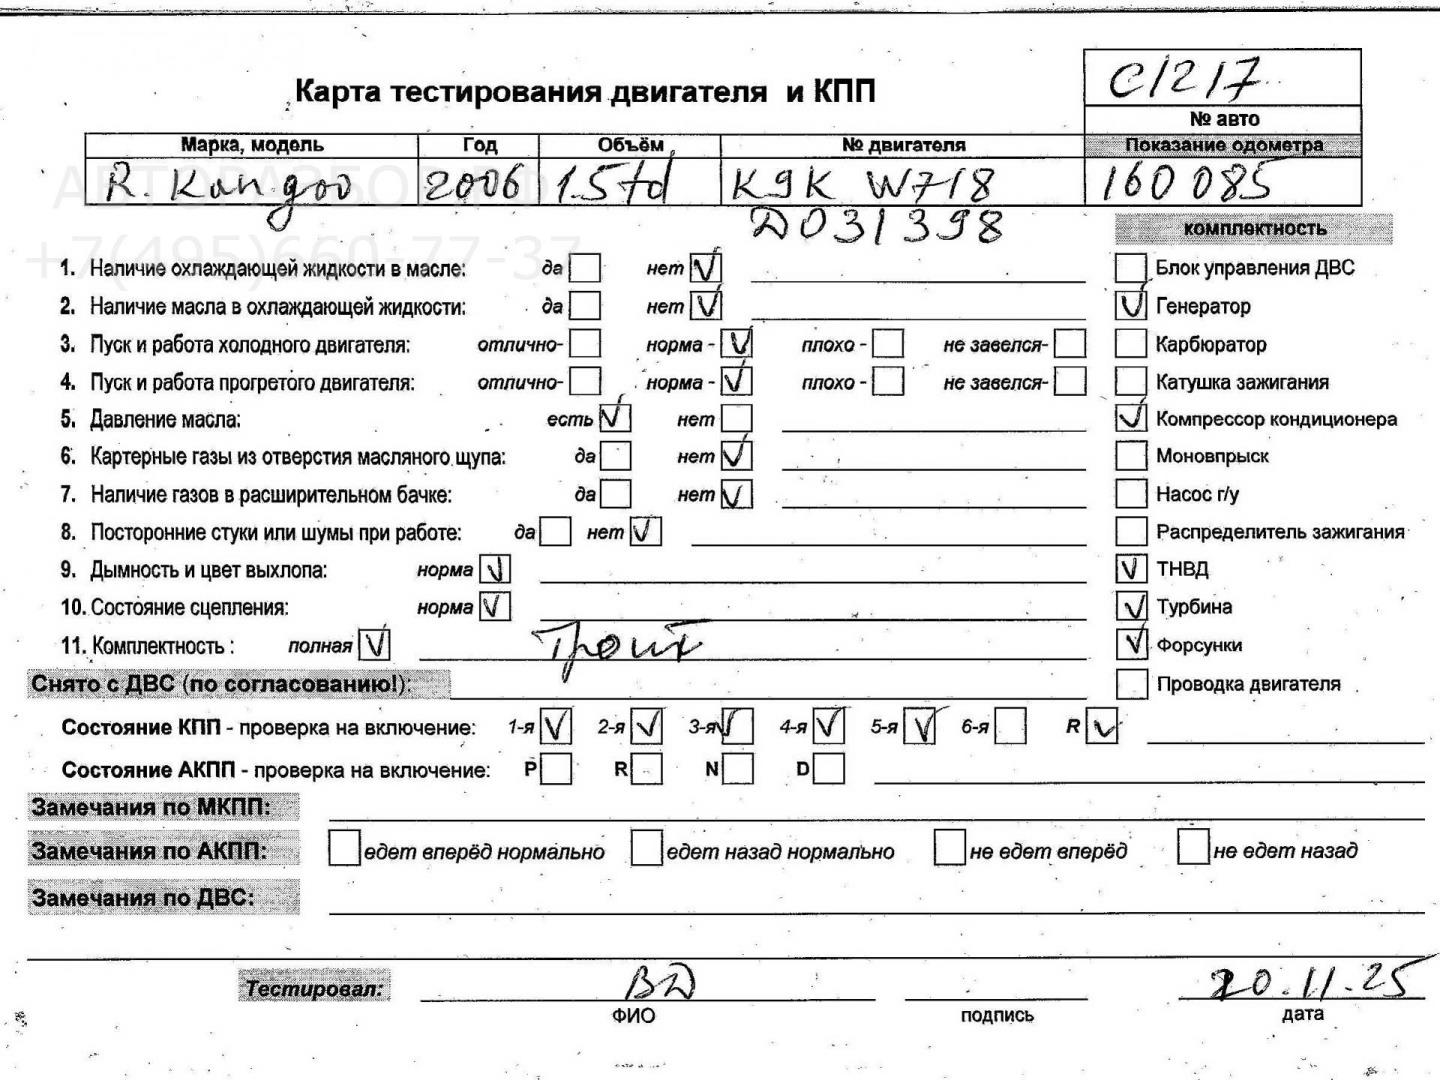 С1217
Карта тестирования двигателя и КПП
№ авто
Марка, модель Год Объём № двигателя Показание одометра
R. Kangoo 2006 1.5td K9K W718 160 085
D031398
АВТОРАЗБОРКА.РФ
+7(495)660-77-37
комплектность
1. Наличие охлаждающей жидкости в масле: да нет Блок управления ДВС
2. Наличие масла в охлаждающей жидкости: да нет Генератор
3. Пуск и работа холодного двигателя: отлично- норма - плохо - не завелся- Карбюратор
4. Пуск и работа прогретого двигателя: отлично- норма - плохо - не завелся- Катушка зажигания
5. Давление масла: есть нет Компрессор кондиционера
6. Картерные газы из отверстия масляного щупа: да нет Моновпрыск
7. Наличие газов в расширительном бачке: да нет Насос г/у
8. Посторонние стуки или шумы при работе: да нет Распределитель зажигания
9. Дымность и цвет выхлопа: норма ТНВД
10. Состояние сцепления: норма Турбина
11. Комплектность : полная Троит Форсунки
Снято с ДВС (по согласованию!): Проводка двигателя
Состояние КПП - проверка на включение: 1-я 2-я 3-я 4-я 5-я 6-я R
Состояние АКПП - проверка на включение: P R N D
Замечания по МКПП:
Замечания по АКПП: едет вперёд нормально едет назад нормально не едет вперёд не едет назад
Замечания по ДВС:
Тестировал: ВД 20.11.25
ФИО подпись дата